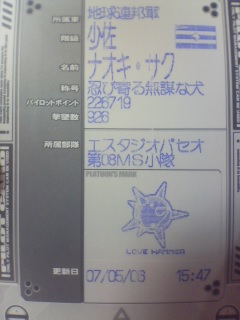 所属軍 地球連邦軍
階級 少佐
名前 ナオキ・サク
称号 忍び寄る無謀な犬
パイロットポイント 226719
撃墜数 926
所属部隊 エスタジオパセオ
第08MS小隊
PLATOON'S MARK
LOVE HAMMER
更新日 07/05/06 15:47